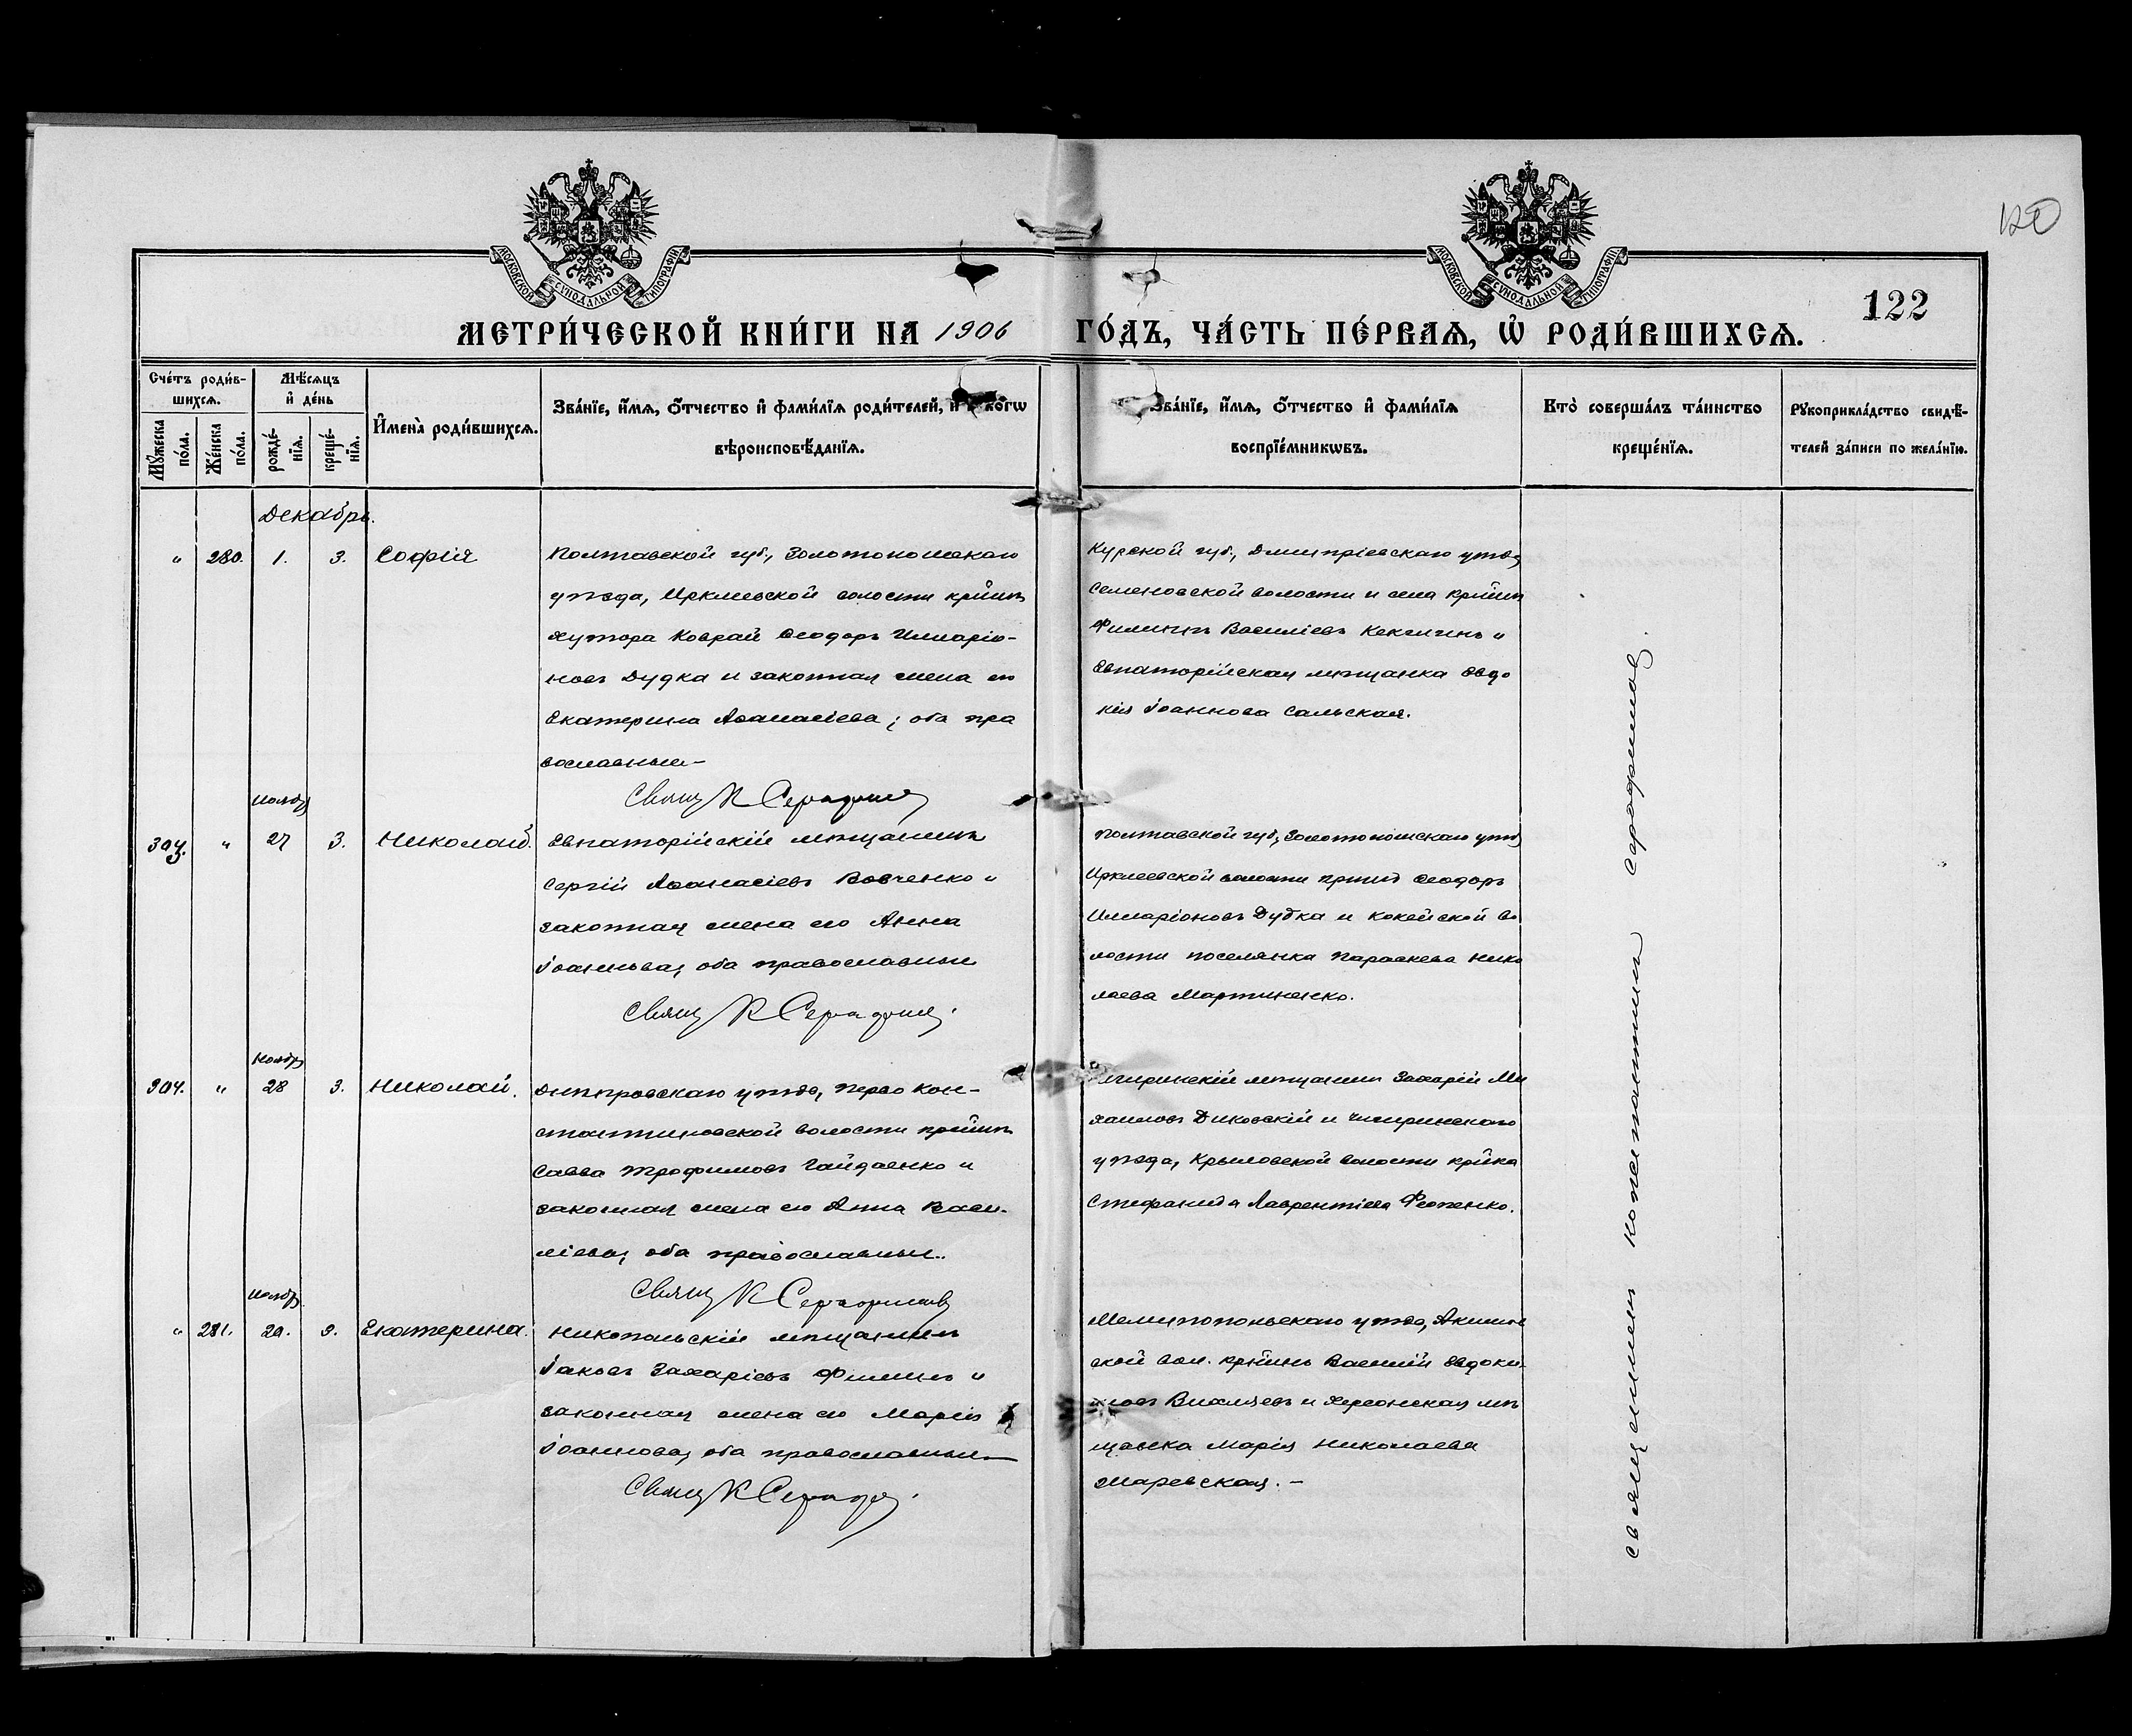 120
МОСКОВСКОЙ СѴНОДАЛЬНОЙ ТИПОГРАФІИ.
МОСКОВСКОЙ СѴНОДАЛЬНОЙ ТИПОГРАФІИ.
122
МЕТРИ́ЧЕСКОЙ КНИ́ГИ НА 1906 ГО́ДЪ, ЧА́СТЬ ПЕ́РВАЯ, Ѡ РОДИ́ВШИХСЯ.
Сче́тъ роди́в-
шихся.
Му́жеска по́ла.
Же́нска по́ла.
Мѣ́сяцъ
и де́нь
рожде́-
нїя.
креще́-
нїя.
И҆мена̀ роди́вшихся.
Зва́нїе, и҆́мя, ѻ҆́тчество и҆ фами́лїя роди́телей, и҆ ко́гѡ
вѣроисповѣ́данїя.
Зва́нїе, и҆́мя, ѻ҆́тчество и҆ фами́лїя
воспрїе́мникѡвъ.
Кто̀ соверша́лъ та́инство
креще́нїя.
Рукоприкла́дство свидѣ́-
телей за́писи по жела́нїю.
Декабрь.
" 280. 1. 3. Софія
Полтавской губ., Золотоношскаго
уѣзда, Ирклеевской волости кр-инъ
хутора Коврай Ѳеодоръ Иларіо-
новъ Дудка и законная жена его
Екатерина Аѳанасіева; оба пра
вославные–
Свящ К Серафимов
Курской губ., Дмитріевскаго уѣзд
Семеновской волости и села кр-инъ
Филиппъ Василіевъ и
Евпаторійская мѣщанка Евдо
кія Іоаннова Сальская.
Ноябр
303. " 27 3. Николай.
Евпаторійскій мѣщанинъ
Сергій Аѳанасіевъ Вовченко и
законная жена его Анна
Іоаннова, оба православные
Свящ К Серафимов
Полтавской губ, Золотоношскаго уѣзд
Ирклеевской волости кр-инъ Ѳеодоръ
Илларіоновъ Дудка и во
лости поселянка Параскева Нико
лаева Мартиненко.
Ноябр
304. " 28 3. Николай.
Днѣпровскаго уѣзда, Перво Кон-
стантиновской волости кр-инъ
Савва Трофимовъ Гайдаенко и
законная жена его Анна Васи-
ліева, оба православные.
Свящ К Серафимов
Чигиринскій мѣщанинъ Захарій Ми
хаиловъ Диковскій и Чигиринскаго
уѣзда, Крыловской волости кр-нка
Стефанида Лаврентіева
Ноябр
" 281. 29. 3. Екатерина.
Никопольскій мѣщанинъ
Іаковъ Захаріевъ и
законная жена его Марія
Іоаннова, оба православные
Свящ К Сераф
Мелитопольскаго уѣзда, Акимов
ской вол. кр-инъ Василій Евдоки-
мовъ и Херсонская мѣ
щанка Марія Николаева
священникъ Константинъ Серафимов.